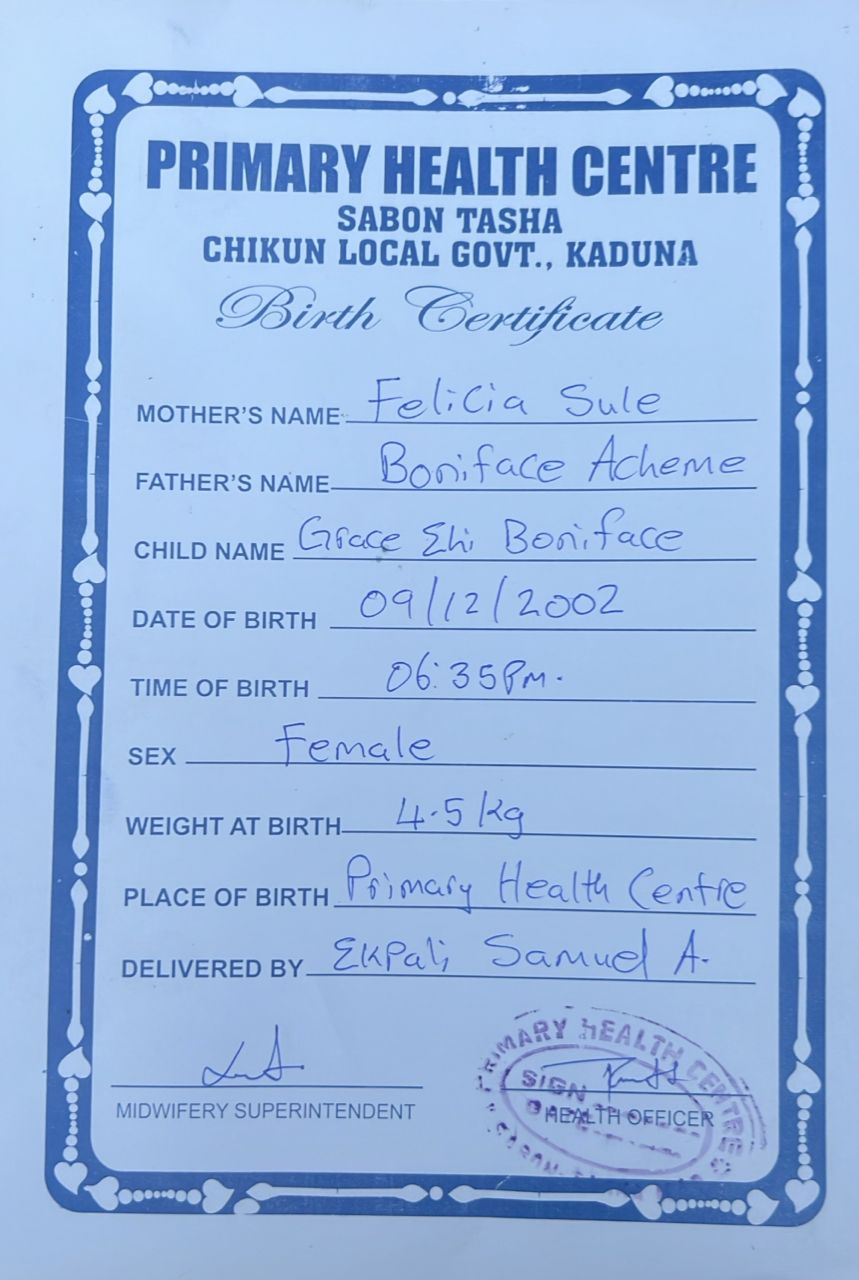 PRIMARY HEALTH CENTRE
SABON TASHA
CHIKUN LOCAL GOVT., KADUNA
Birth Certificate
MOTHER'S NAME Felicia Sule
FATHER'S NAME Boniface Acheme
CHILD NAME Grace Ehi Boniface
DATE OF BIRTH 09/12/2002
TIME OF BIRTH 06:35Pm.
SEX Female
WEIGHT AT BIRTH 4.5 kg
PLACE OF BIRTH Primary Health Centre
DELIVERED BY Ekpali Samuel A.
PRIMARY HEALTH CENTRE
SIGN
MIDWIFERY SUPERINTENDENT
HEALTH OFFICER